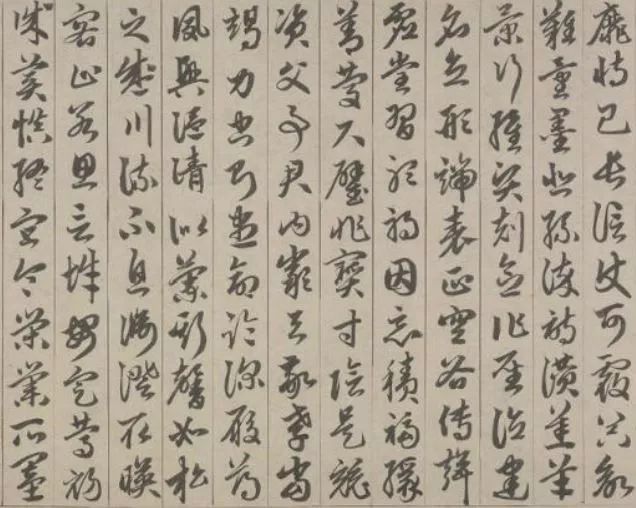 靡恃己長信使可覆器欲
難量墨悲絲染詩讚羔羊
景行維賢剋念作聖德建
名立形端表正空谷傳聲
虛堂習聽禍因惡積福緣
善慶尺璧非寶寸陰是競
資父事君曰嚴與敬孝當
竭力忠則盡命臨深履薄
夙興溫清似蘭斯馨如松
之盛川流不息淵澄取映
容止若思言辭安定篤初
誠美慎終宜令榮業所基